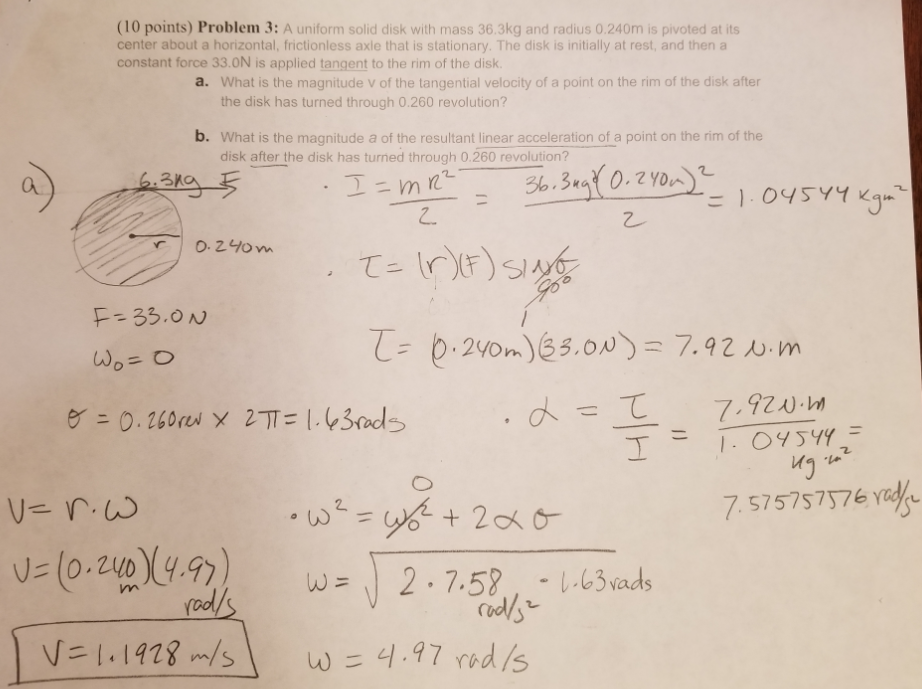 (10 points) Problem 3: A uniform solid disk with mass 36.3kg and radius 0.240m is pivoted at its
center about a horizontal, frictionless axle that is stationary. The disk is initially at rest, and then a
constant force 33.0N is applied tangent to the rim of the disk.
a. What is the magnitude v of the tangential velocity of a point on the rim of the disk after
the disk has turned through 0.260 revolution?
b. What is the magnitude a of the resultant linear acceleration of a point on the rim of the
disk after the disk has turned through 0.260 revolution?
a)
6.3kg F
r 0.240m
F = 33.0N
ω₀ = 0
θ = 0.260rev × 2π = 1.63rads
· I = mR²/2 = 36.3kg(0.240m)²/2 = 1.04544 kgm²
· τ = (r)(F) sinθ
90°
1
τ = (0.240m)(33.0N) = 7.92 N·m
· α = τ/I = 7.92N·m / 1.04544 kg·m² =
7.575757576 rad/s²
· ω² = ω₀² + 2αθ
0
ω = √2 · 7.58 rad/s² · 1.63rads
ω = 4.97 rad/s
V = r·ω
V = (0.240 m)(4.97) rad/s
V = 1.1928 m/s